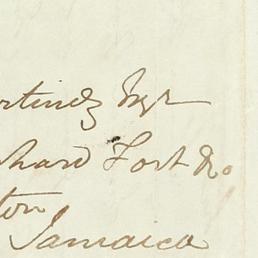 rtindz Esqr
chard Fort & Co
ton
Jamaica